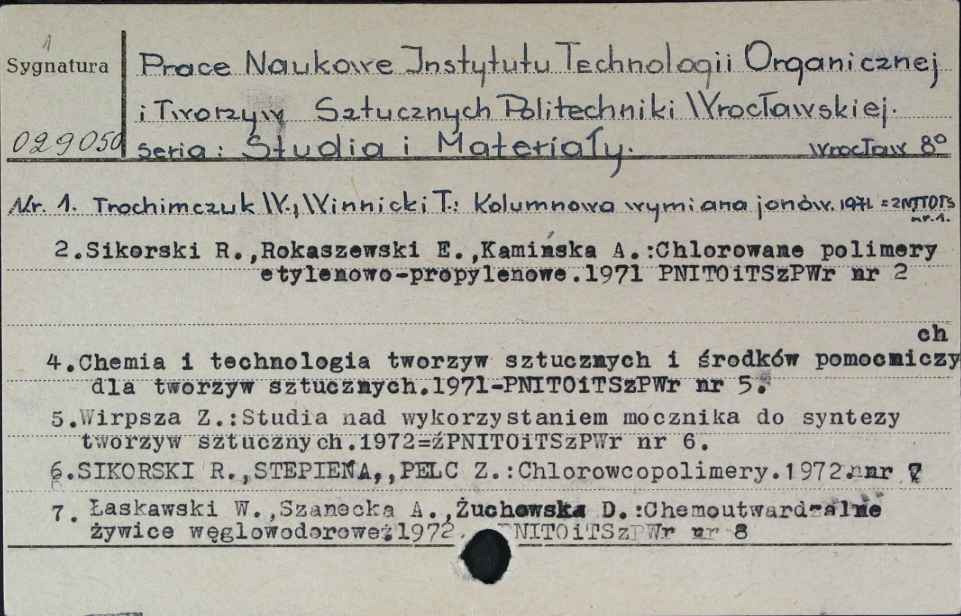 1
Sygnatura
Prace Naukowe Instytutu Technologii Organicznej
i Tworzyw Sztucznych Politechniki Wrocławskiej.
029050
seria: Studia i Materiały. Wrocław 8°
Nr. 1. Trochimczuk W., Winnicki T.: Kolumnowa wymiana jonów. 1971
nr. 1.
2.Sikorski R.,Rokaszewski E.,Kamińska A.:Chlorowane polimery
etylenowo-propylenowe.1971 PNITOiTSzPWr nr 2
ch
4.Chemia i technologia tworzyw sztucznych i środków pomocniczy
dla tworzyw sztucznych.1971-PNITOiTSzPWr nr 5.
5.Wirpsza Z.:Studia nad wykorzystaniem mocznika do syntezy
tworzyw sztucznych.1972=źPNITOiTSzPWr nr 6.
6.SIKORSKI R.,STEPIEŃA,,PELC Z.:Chlorowcopolimery.1972.nr 7
7. Łaskawski W.,Szanecka A.,Żuchowska D.:Chemoutwardzalne
żywice węglowodorowe.1972. PNITOiTSzPWr nr 8